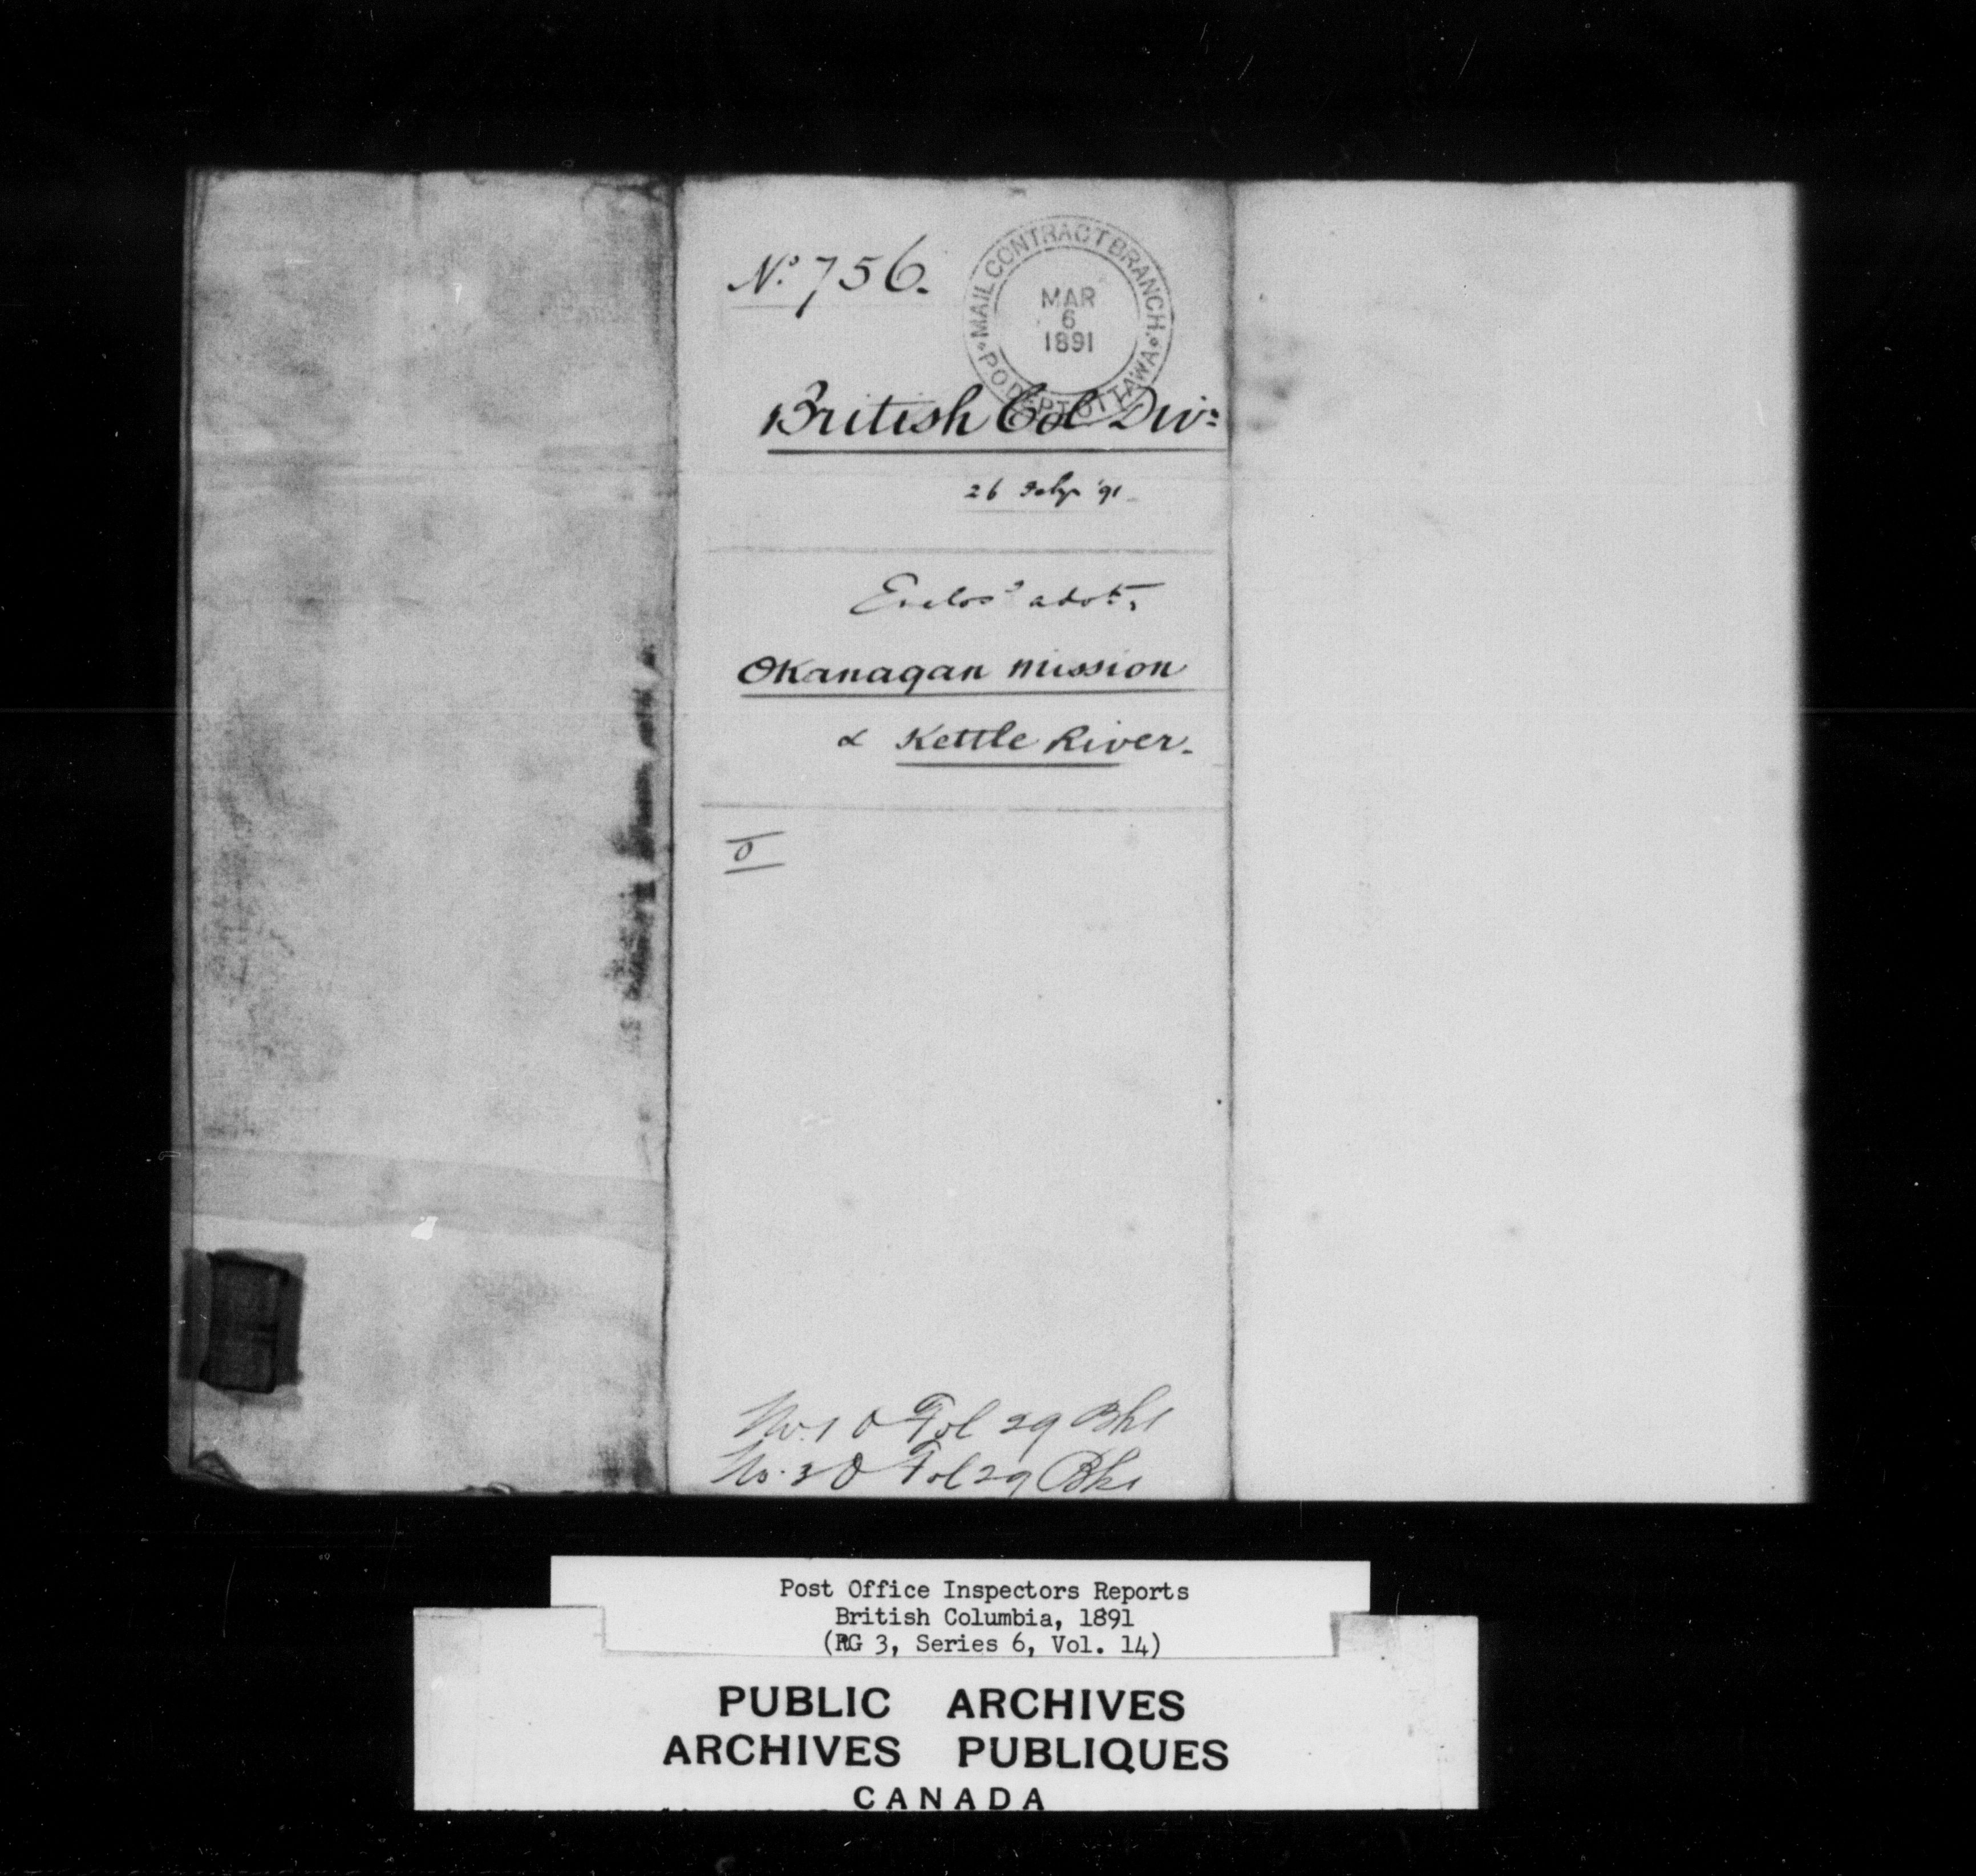 No. 756.
MAIL CONTRACT BRANCH.
MAR
6
1891
P.O. DEPT OTTAWA
British Col Divn
26 Feby '91
Enclosg advt,
Okanagan Mission
& Kettle River.
No. 1 O Fol 29 Bk1
No. 3 O Fol 29 Bk1
Post Office Inspectors Reports
British Columbia, 1891
(RG 3, Series 6, Vol. 14)
PUBLIC ARCHIVES
ARCHIVES PUBLIQUES
CANADA